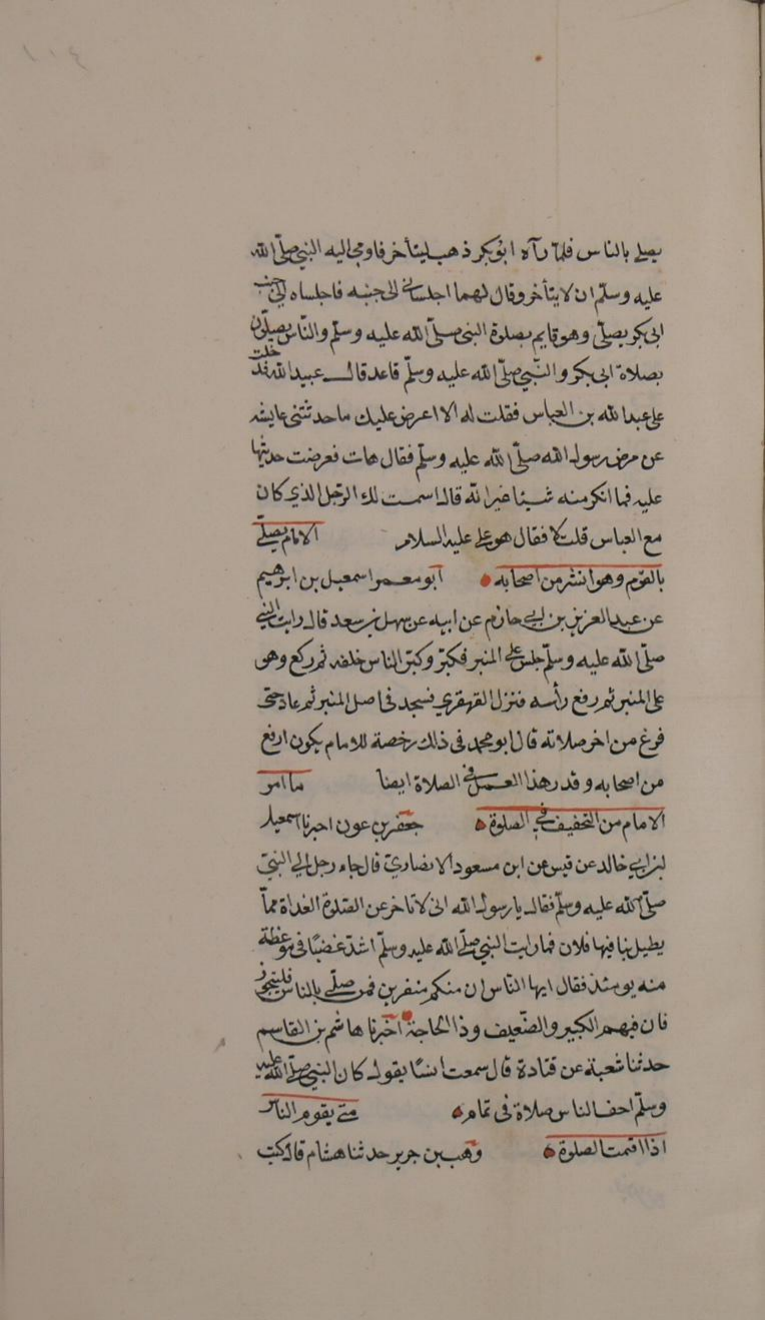 يصلي بالناس فلما رآه ابو بكر ذهب ليتأخر فاومى اليه النبي صلى الله
عليه وسلم ان لا يتأخر وقال لهما اجلساني الى جنبه فاجلساه الى جنب
ابى بكر يصلى وهو قايم بصلوة النبى صلى الله عليه وسلم والناس يصلون
بصلاة ابى بكر والنبي صلى الله عليه وسلم قاعد قال عبيد الله فدخلت
على عبد الله بن العباس فقلت له الا اعرض عليك ما حدثتنى عايشه
عن مرض رسول الله صلى الله عليه وسلم فقال هات فعرضت حديثها
عليه فما انكر منه شيئا غير انه قال اسمت لك الرجل الذي كان
مع العباس قلت لا فقال هو على عليه السلام الامام يصلى
بالقوم وهو انشز من اصحابه ابو معمر اسمعيل بن ابرهيم
عن عبد العزيز بن ابي حازم عن ابيه عن سهل بن سعد قال رايت النبي
صلى الله عليه وسلم جلس على المنبر فكبر وكبر الناس خلفه ثم ركع وهو
على المنبر ثم رفع رأسه فنزل القهقري فسجد فى اصل المنبر ثم عاد حتى
فرغ من اخر صلاته قال ابو محمد فى ذلك رخصة للامام يكون ارفع
من اصحابه و قدر هذا العمل في الصلاة ايضا ما امر
الامام من التخفيف في الصلوة جعفر بن عون اخبرنا اسمعيل
بن ابي خالد عن قيس عن ابن مسعود الانصارى قال جاء رجل الى النبى
صلى الله عليه وسلم فقال يا رسول الله انى لاتاخر عن الصلوة الغداة مما
يطيل بنا فيها فلان فما رايت النبى صلى الله عليه وسلم اشد غضبا فى موعظة
منه يومئذ فقال ايها الناس ان منكم منفرين فمن صلى بالناس فليتجوز
فان فيهم الكبير والضعيف وذا الحاجة اخبرنا هاشم بن القاسم
حدثنا شعبة عن قتادة قال سمعت انسا يقول كان النبى صلى الله عليه
وسلم اخف الناس صلاة فى تمام متى يقوم الناس
اذا اقيمت الصلوة وهب بن جرير حدثنا هشام قال كتب